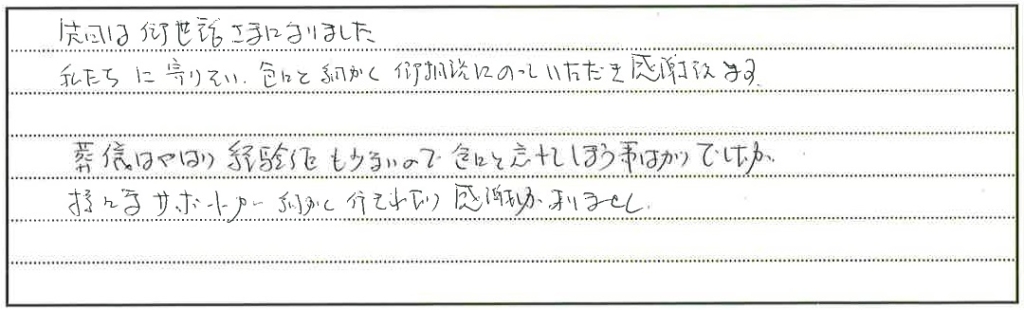 先日は御世話さまになりました
私たちに寄りそい、色々と細かく御相談にのっていただき感謝致します。
葬儀はやはり経験値も少ないので色々と忘れてしまう事ばかりでしたが、
様々なサポートが細かく行てわたり感謝しかありません。